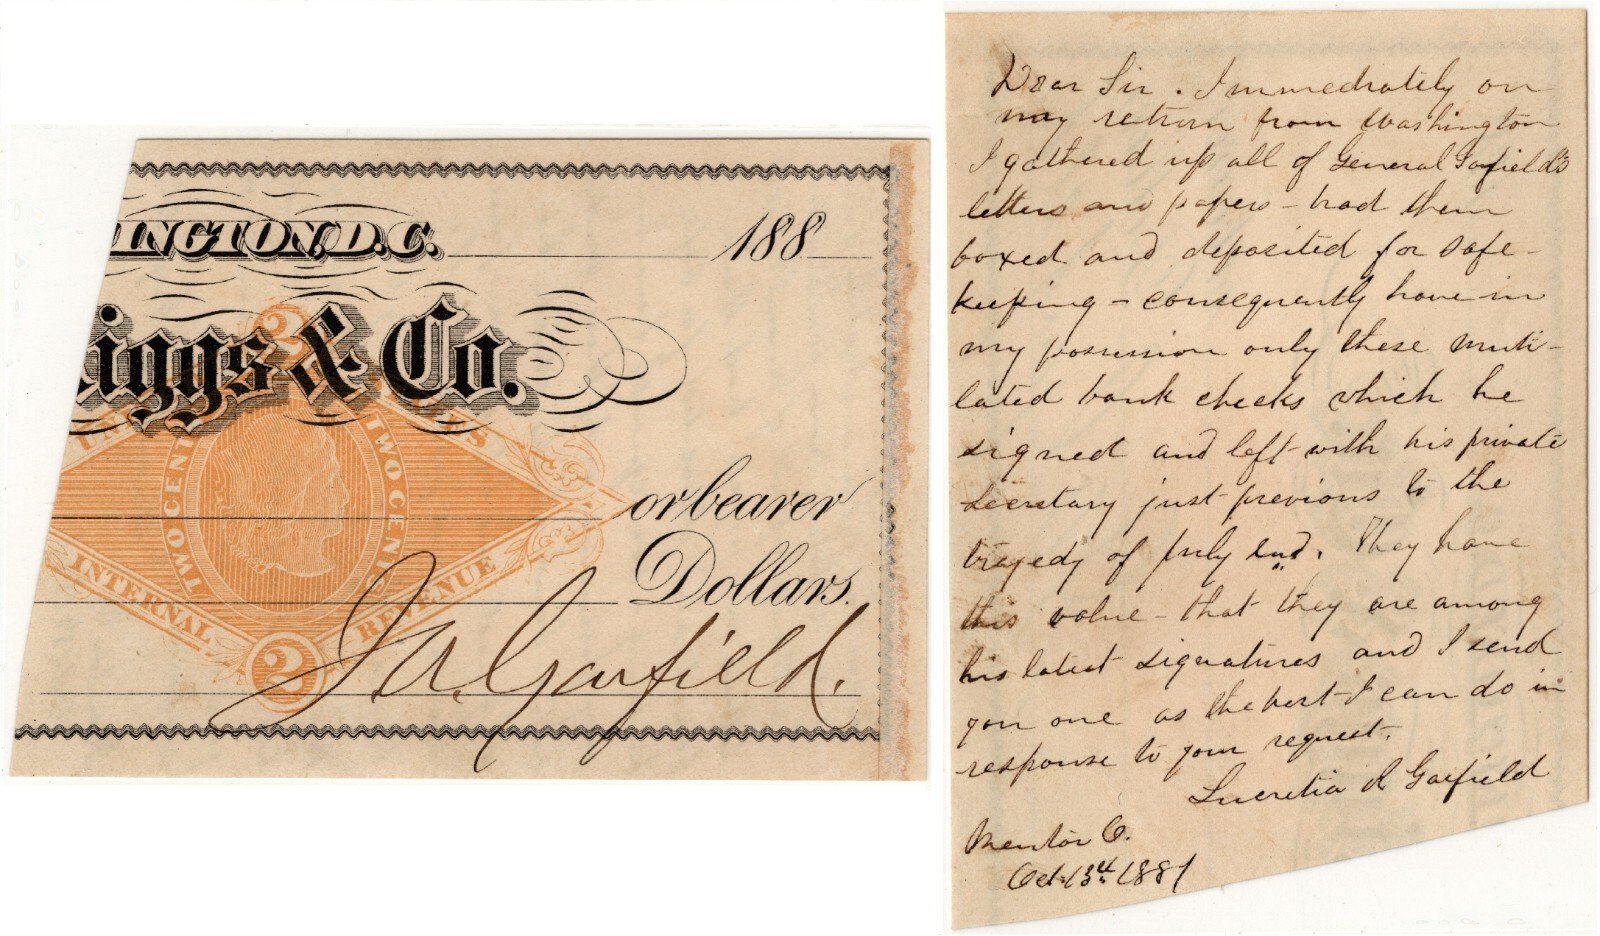 INGTON, D.C. 188
iggs & Co.
2
TWO CENT
TWO CENT
or bearer
Dollars.
INTERNAL REVENUE
2
J. A. Garfield.
Dear Sir. Immediately on
my return from Washington
I gathered up all of General Garfield's
letters and papers – had them
boxed and deposited for safe-
keeping – consequently have in
my possession only these muti-
lated bank checks which he
signed and left with his private
secretary just previous to the
tragedy of July 2nd. They have
this value – that they are among
his latest signatures and I send
you one as the best I can do in
response to your request.
Lucretia R Garfield
Mentor O.
Oct. 13th 1881